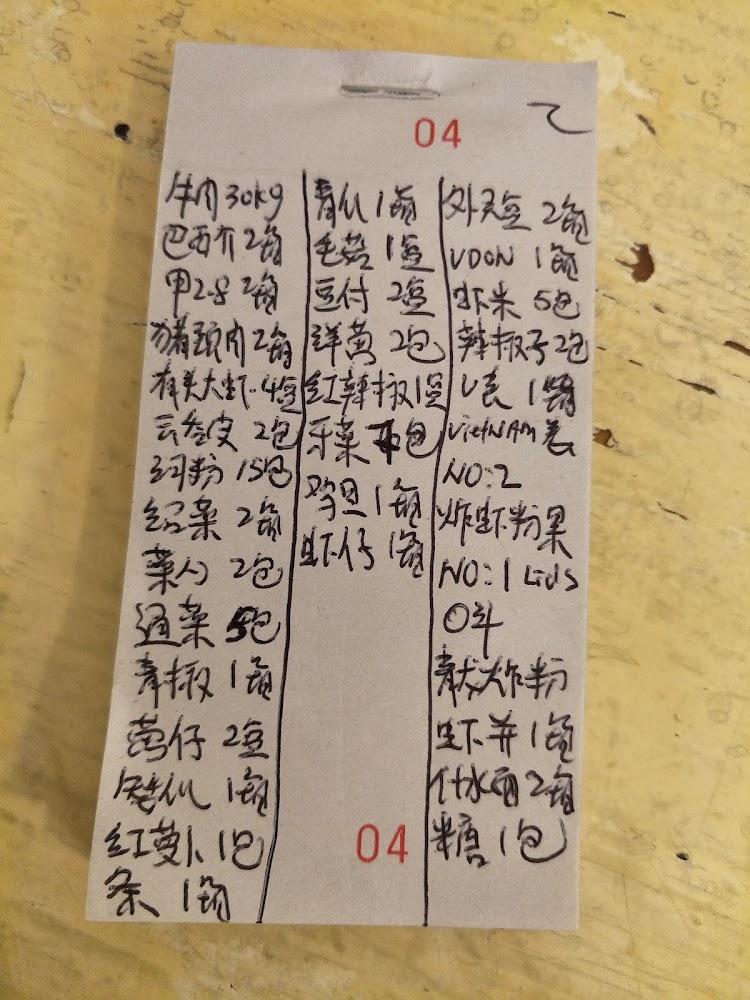 04
牛肉 30kg
巴西介 2箱
甲2-8 2箱
猪颈肉 2箱
有头大虾 4盒
云吞皮 2包
河粉 15包
绍菜 2箱
菜心 2包
通菜 5包
青椒 1箱
菇仔 2盒
1箱
红萝卜 1包
条 1箱
青瓜 1箱
毛菇 1盒
豆付 2盒
洋黄 2包
红辣椒 1盒
牙菜 包
鸡旦 1箱
虾仔 1箱
04
外卖盒 2箱
UDON 1箱
虾米 5包
辣椒子 2包
1箱
VIETNAM
NO:2
炸虾粉果
NO:1 Lids
炸粉
虾并 1箱
什水 2箱
糖 1包